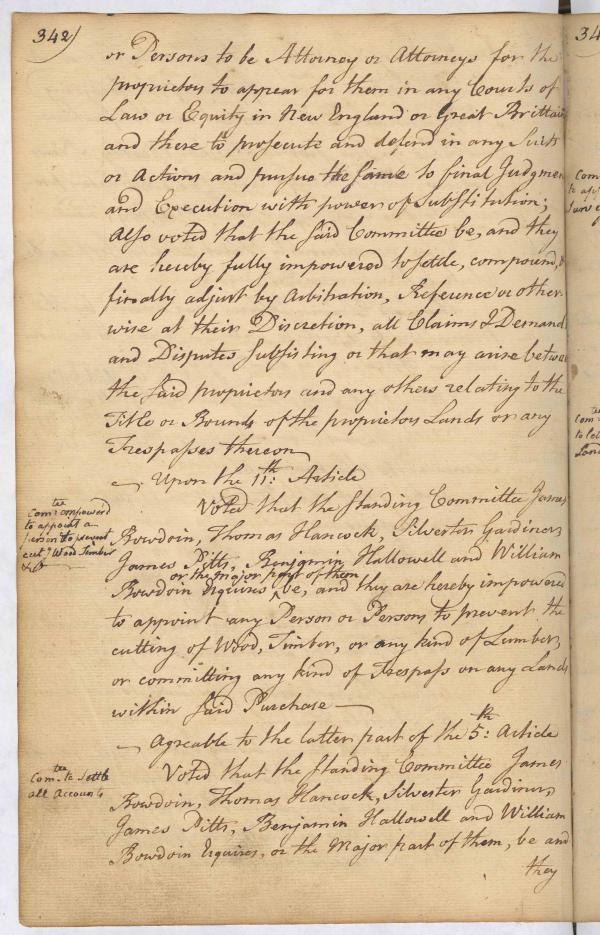 342)
or Persons to be Attorney or Attorneys for the
proprietors to appear for them in any Courts of
Law or Equity in New England or Great Brittain
and there to prosecute and defend in any Suits
or Actions and pursue the same to final Judgmen
and Execution with power of Substitution;
Also voted that the said Committee be, and they
are hereby fully impowered to settle, compound, &
finally adjust by Arbitration, Reference or other
wise at their Discretion, all Claims & Demand
and Disputes Subsisting or that may arise betwe
the said proprietors and any others relating to the
Title or Bounds of the proprietors Lands or any
Trespasses thereon
Upon the 11th: Article
Voted that the Standing Committee James
Bowdoin, Thomas Hancock, Silvester Gardiner,
James Pitts, Benjamin Hallowell and William
or the major part of them
Bowdoin Esquires ^ be, and they are hereby impowered
to appoint any Person or Persons to prevent the
cutting of Wood, Timber, or any kind of Lumber,
or committing any kind of Trespass on any Lands
within said Purchase
Agreable to the latter part of the 5th: Article
Voted that the Standing Committee James
Bowdoin, Thomas Hancock, Silvester Gardiner,
James Pitts, Benjamin Hallowell and William
Bowdoin Esquires, or the Major part of them, be and
they
Comtee impowered
to appoint a
person to prevent
cutg Wood Timber
&c
Comtee to Settle
all Accounts
34
Com
Com
Land